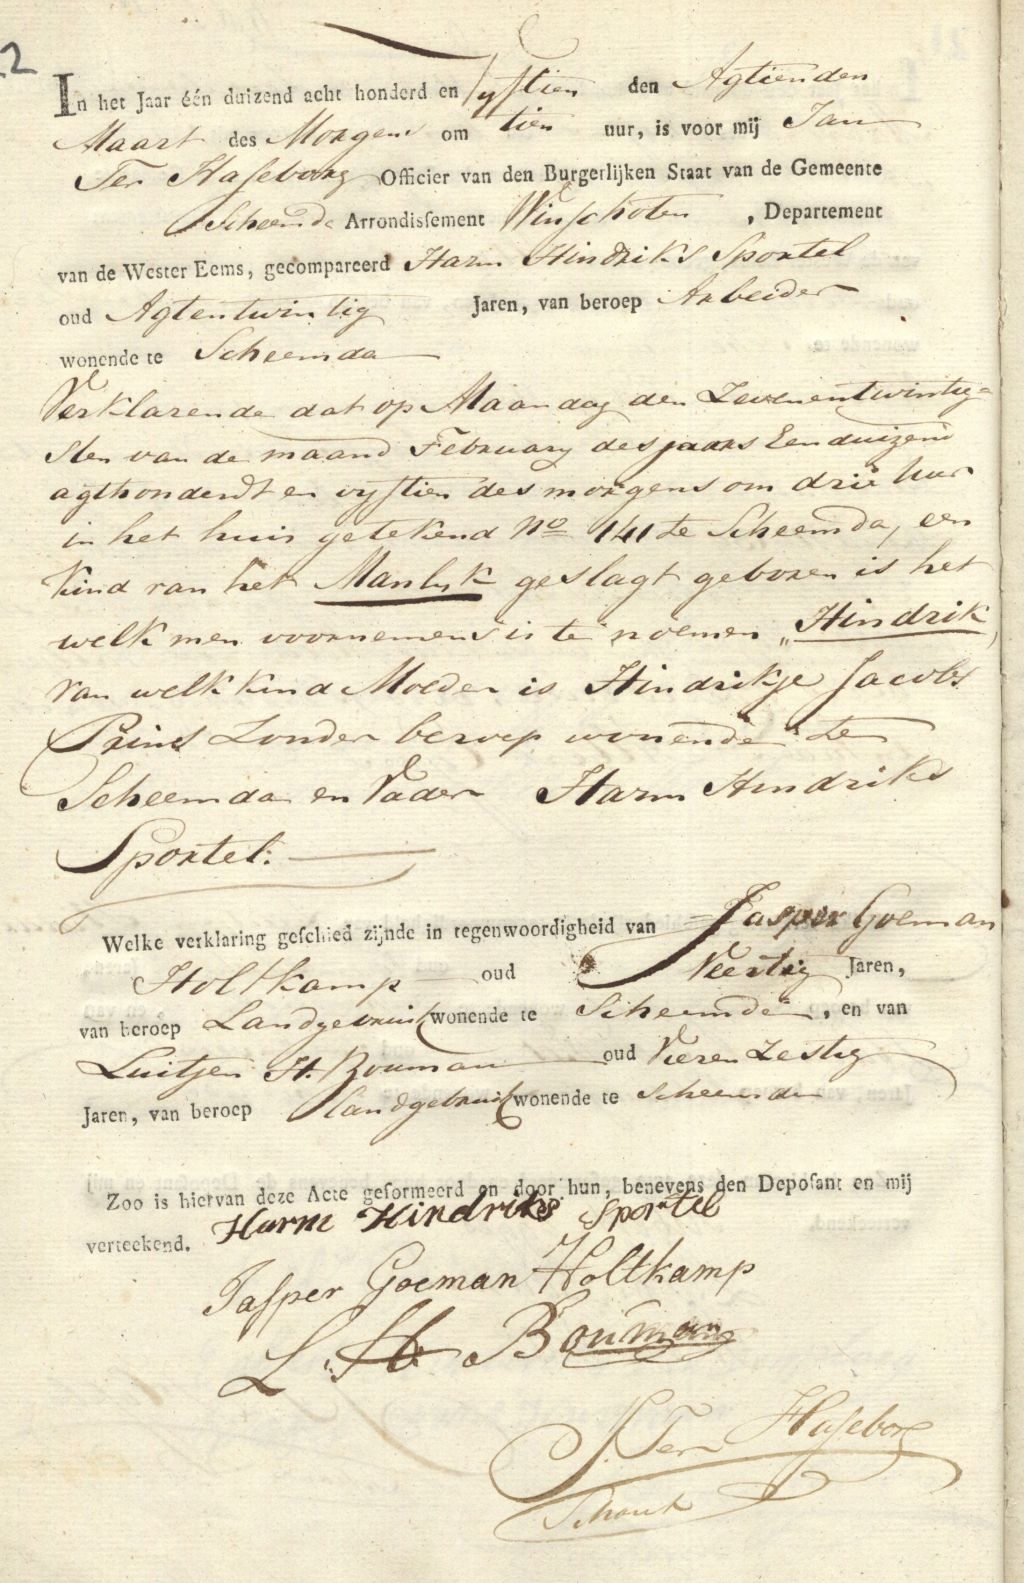 22
In het Jaar één duizend acht honderd en vyftien den Agtienden
Maart des Morgens om tien uur, is voor mij Jan
Ter Haseborg Officier van den Burgerlijken Staat van de Gemeente
Scheemda Arrondissement Winschoten, Departement
van de Wester Eems, gecompareerd Harm Hindriks Sportel
oud Agtentwintig Jaren, van beroep Arbeider
wonende te Scheemda
Verklarende dat op Maandag den Zevenentwintig=
sten van de maand February des jaars Eenduizend
agthonderdt en vyftien des morgens om drie Uur
in het huis getekend No 141 te Scheemda, een
kind van het Manlyk geslagt geboren is het
welk men voornemens is te noemen „Hindrik
van welk kind Moeder is Hindrikje Jacobs
Prins Zonder beroep wonende te
Scheemda en Vader Harm Hindriks
Sportel:
Welke verklaring geschied zijnde in tegenwoordigheid van Jasper Goeman
Holtkamp oud Veertig Jaren,
van beroep Landgebruik wonende te Scheemda, en van
Luitjen H. Bouman oud Vieren Zestig
Jaren, van beroep Landgebruik wonende te Scheemda
Zoo is hiervan deze Acte geformeerd en door hun, benevens den Deposant en mij
verteekend. Harm Hindriks Sportel
Jasper Goeman Holtkamp
L. H. Bouman
J. Ter Haseborg
Schout